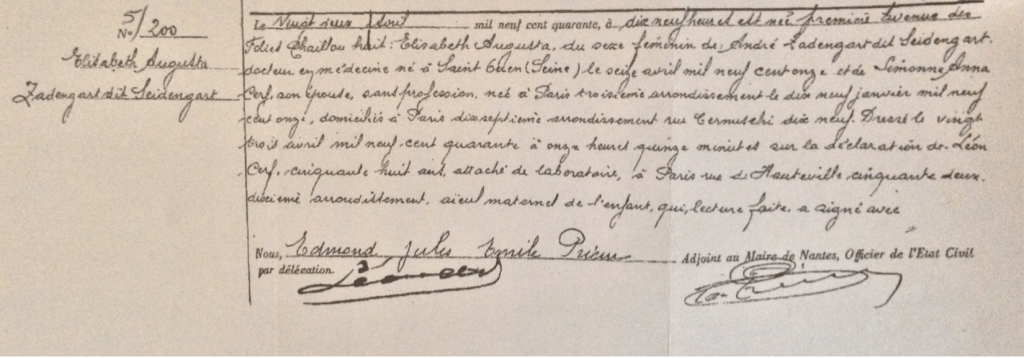 5/
N° 200
Elisabeth Augusta
Zadengart dit Seidengart
Le Vingt deux Avril mil neuf cent quarante, à dix neuf heures est née, première Avenue des
Folies Chaillou huit: Elisabeth Augusta, du sexe féminin de: André Zadengart dit Seidengart.
docteur en médecine né à Saint Ouen (Seine) le seize avril mil neuf cent onze et de Simonne Anna
Cerf, son épouse, sans profession, née à Paris troisième arrondissement le dix neuf janvier mil neuf
cent onze, domiciliés à Paris dix septième arrondissement rue Cernuschi dix neuf. Dressé le vingt
trois avril mil neuf cent quarante à onze heures quinze minutes sur la déclaration de Léon
Cerf, cinquante huit ans, attaché de laboratoire, à Paris rue d'Hauteville cinquante deux,
dixième arrondissement, aïeul maternel de l'enfant, qui, lecture faite, a signé avec
Nous, Edmond Jules Emile Adjoint au Maire de Nantes, Officier de l'Etat Civil
par délécation.